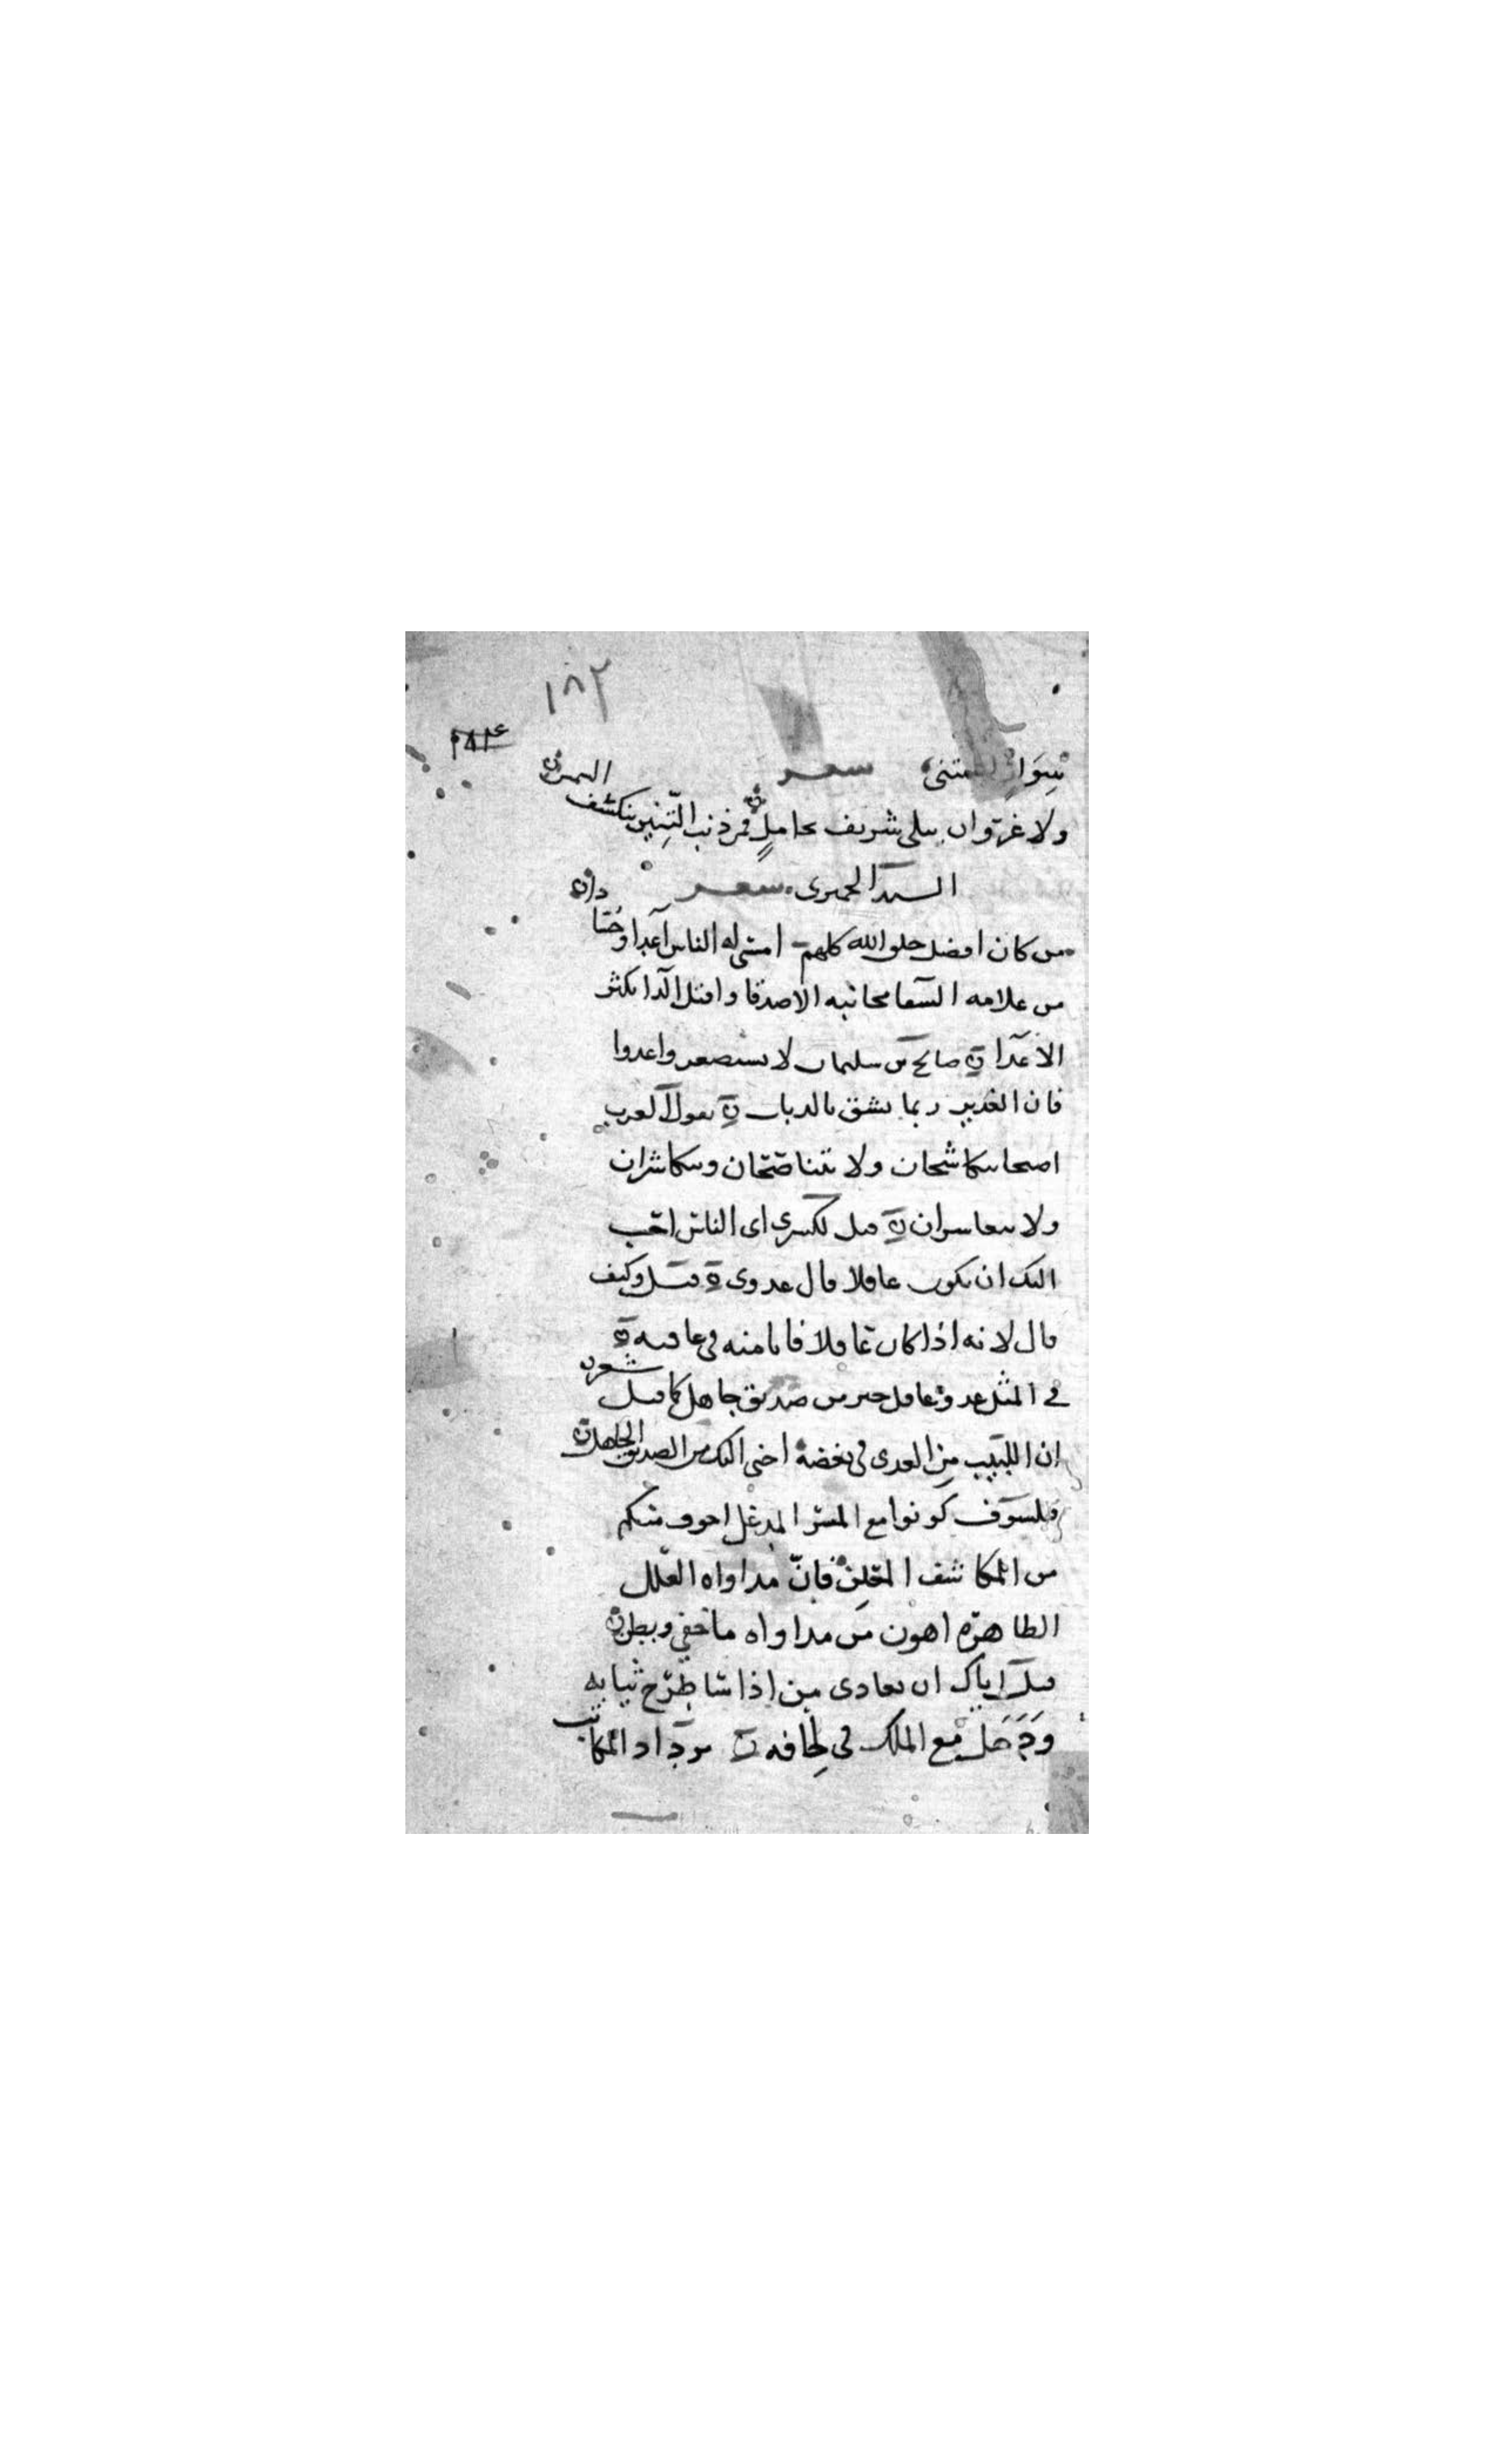 ١٨٢
شعر
ولا غرو ان يبلى شريف بخامل فمن ذنب التنين ينكسف
السيد الحميرى شعر
من كان افضل خلق الله كلهم امسى له الناس اعداء وحسا
من علامه مجانبه الاصدقا وا
الاعدا صالح بن سليمان لا تستصغروا عدوا
فان الغدير ربما شق بالدباب يقول العرب
اصبحا يتكاشحان ولا يتناصحان ويتكاشران
ولا يتعاشران قيل لكسرى اى الناس احب
اليك ان يكون عاقلا قال عدوى قيل وكيف
قال لانه اذا كان عاقلا فانا منه فى عافيه
فى المثل عدو عاقل خير من صديق جاهل كما قيل شعر
ان اللبيب من العدى فى بغضه احنى اليك من الصديق الجاهل
فيلسوف كونوا مع المسر المدغل اخوف منكم
من المكاشف المعلن فان مداواه العلل
الظاهره اهون من مداواه ما خفى وبطن
قيل اياك ان تعادى من اذا شا طرح ثيابه
ودخل مع الملك فى لحافه